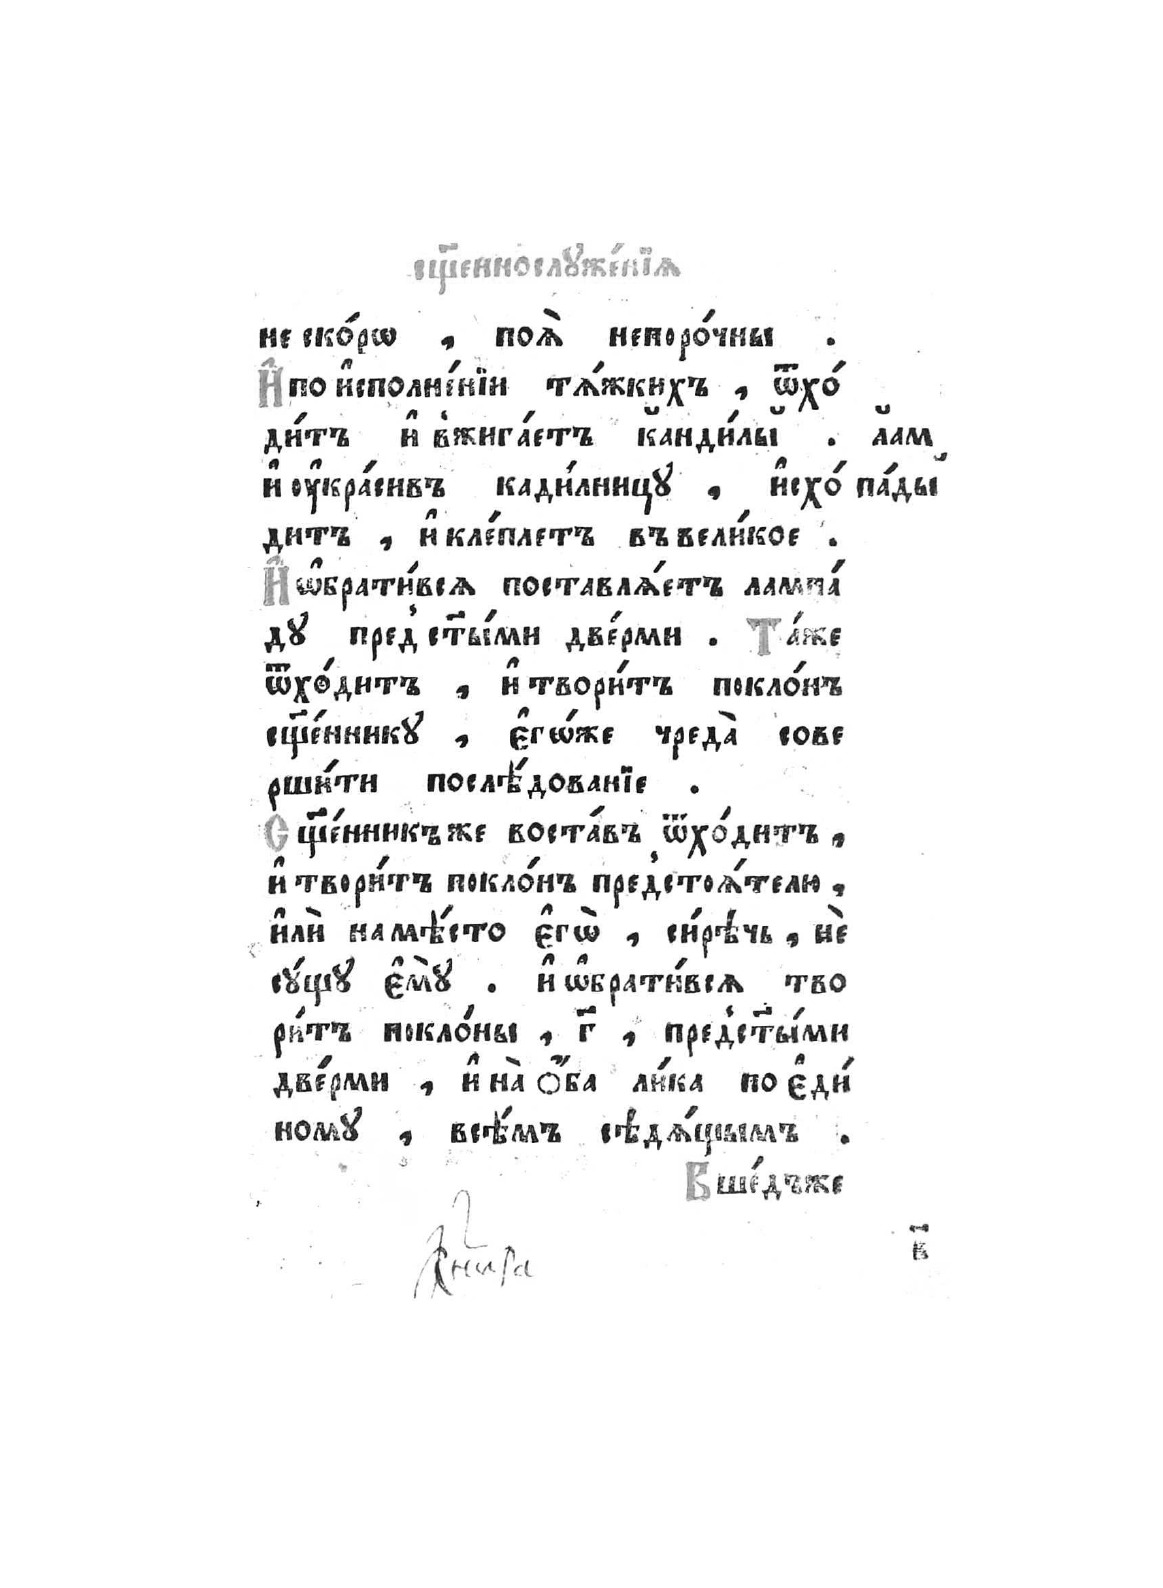 сщ҃еннослꙋже́нїѧ
не ско́рѡ , поѧ̀ непоро́чны .
И҆ по и҆сполне́нїи тѧ́жкихъ , ѿхо́
ди́тъ и҆ вжига́етъ кӑнди́лы̆ . ӑлам
и҆ оу҆кра́сивъ кади́лницꙋ , и҆схо́ па́ды̆
дитъ , и҆ кле́плетъ въ вели́кое .
И҆ ѡ҆брати́всѧ поставлѧ́етъ лампа́
дꙋ пред̾ ст҃ы́ми две́рми . Та́же
ѿхо́дитъ , и҆ твори́тъ покло́нъ
сщ҃е́нникꙋ , є҆гѡ́же чреда̀ сове
рши́ти послѣ́дованїе .
Сщ҃е́нникъ же воста́въ ѿхо́дитъ ,
и҆ твори́тъ покло́нъ пред̾стоѧ́телю ,
и҆лѝ на мѣ́сто є҆гѡ̀ , си́рѣчь , нѐ
сꙋ́щꙋ є҆мꙋ̀ . и҆ ѡ҆брати́всѧ тво
ри́тъ покло́ны , г҃ , пред̾ ст҃ы́ми
две́рми , и҆ на̀ ѻ҆́ба ли́ка по є҆ди́
номꙋ , всѣ́мъ сѣдѧ́щымъ .
Вше́дъ же
в҃і